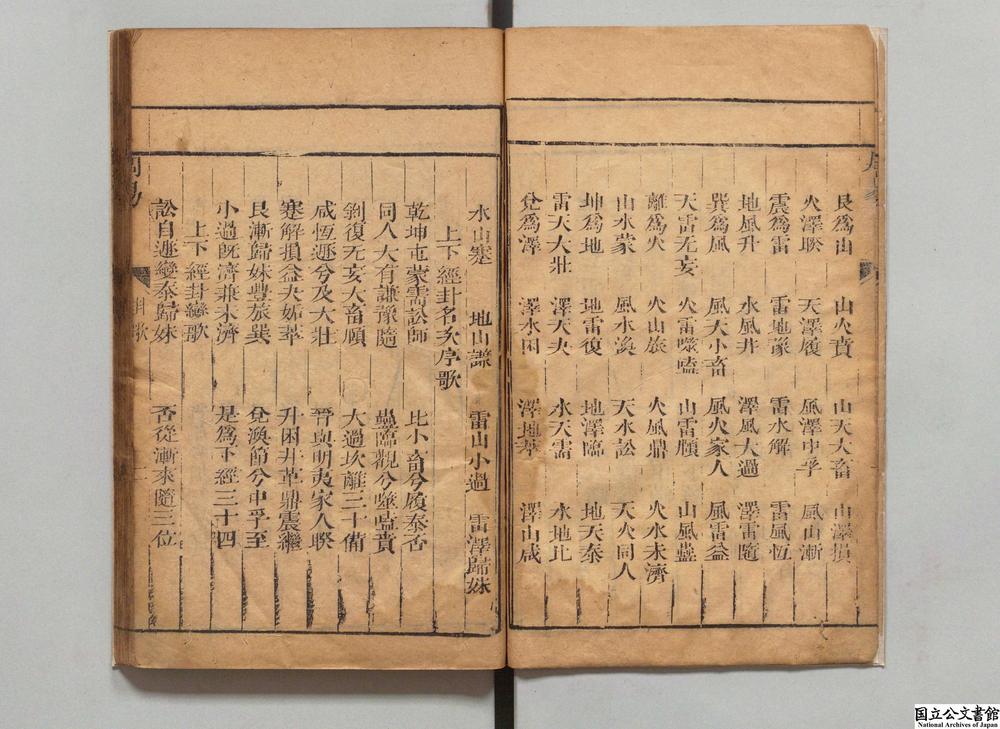 艮爲山　山火賁　山天大畜　山澤損
火澤睽　天澤履　風澤中孚　風山漸
震爲雷　雷地豫　雷水解　雷風恆
地風升　水風井　澤風大過　澤雷隨
巽爲風　風天小畜　風火家人　風雷益
天雷无妄　火雷噬嗑　山雷頤　山風蠱
離爲火　火山旅　火風鼎　火水未濟
山水蒙　風水渙　天水訟　天火同人
坤爲地　地雷復　地澤臨　地天泰
雷天大壯　澤天夬　水天需　水地比
兌爲澤　澤水困　澤地萃　澤山咸
水山蹇　地山謙　雷山小過　雷澤歸妹
上下經卦名次序歌
乾坤屯蒙需訟師　比小畜兮履泰否
同人大有謙豫隨　蠱臨觀兮噬嗑賁
剝復无妄大畜頤　大過坎離三十備
咸恆遯兮及大壯　晉與明夷家人睽
蹇解損益夬姤萃　升困井革鼎震繼
艮漸歸妹豐旅巽　兌渙節兮中孚至
小過旣濟兼未濟　是爲下經三十四
上下經卦變歌
訟自遯變泰歸妹　否從漸來隨三位
周易
卦歌
国立公文書館
National Archives of Japan